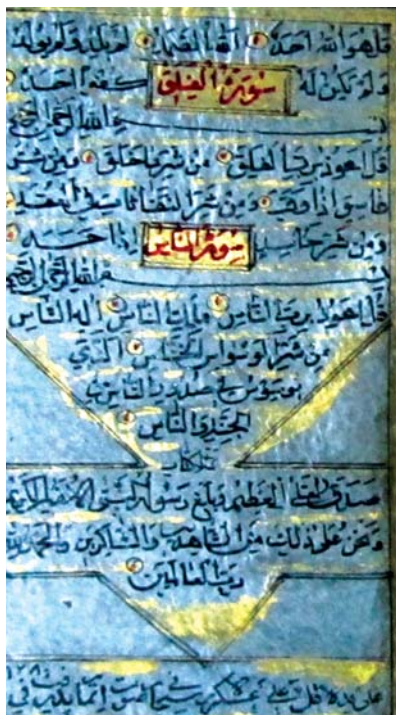 قل هو الله احد الله الصمد لم يلد ولم يولد
ولم يكن له سورة الفلق كفوا احد
بسم الله الرحمن الرحيم
قل اعوذ برب الفلق من شر ما خلق ومن شر
غاسق اذا وقب ومن شر النفاثات في العقد
ومن شر حاسد سورة الناس اذا حسد
بسم الله الرحمن الرحيم
قل اعوذ برب الناس ملك الناس اله الناس
من شر الوسواس الخناس الذي
يوسوس في صدور الناس
الجنة والناس
صدق الله العظيم وبلغ رسوله النبي الكريم
ونحن على ذلك من الشاهدين والشاكرين والحمد
رب العالمين
على يده